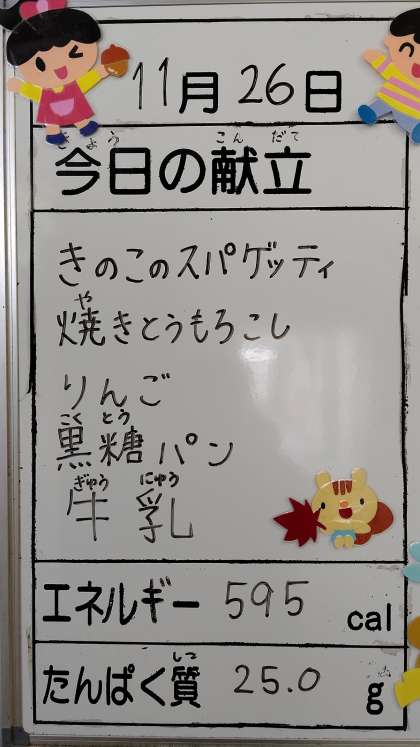 11月26日
きょう こん だて
今日の献立
きのこのスパゲッティ
や
焼きとうもろこし
りんご
こく とう
黒糖パン
ぎゅう にゅう
牛乳
エネルギー 595 cal
しつ
たんぱく質 25.0 g